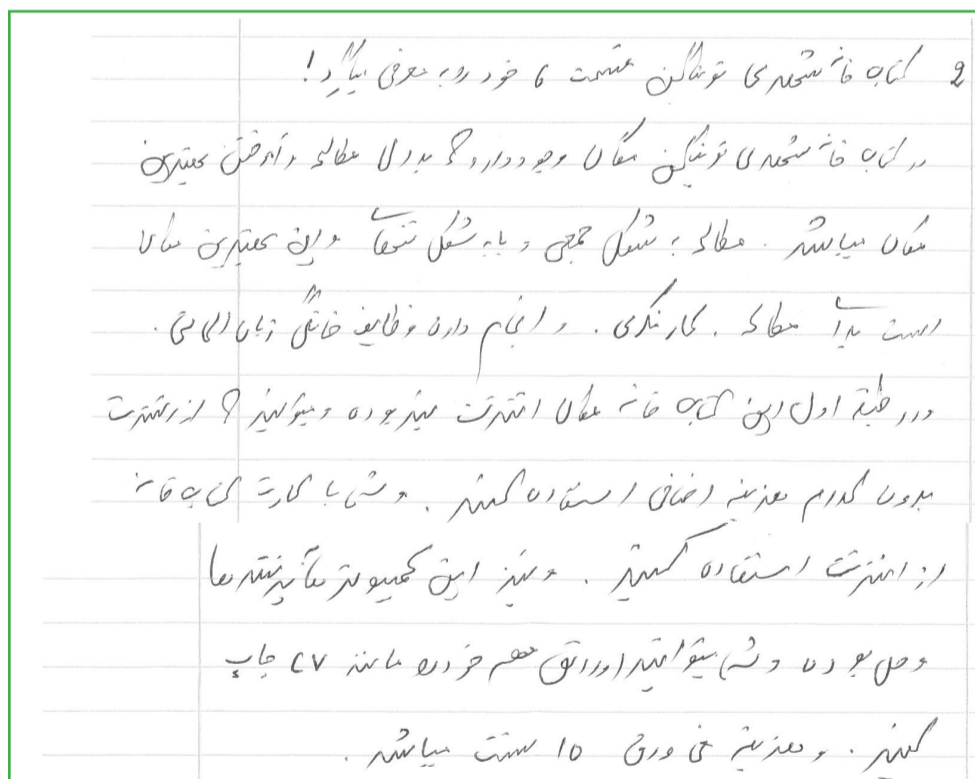 2 کتاب خانه شهری توبنگن قسمت ما خود را به معرفی میگیرد!
در کتاب خانه شهری توبنگن مکان وجود دارد که برای مطالعه و آموختن بهترین
مکان میباشد. مطالعه به شکل جمعی و یا به شکل تنها و این بهترین مکان
است برای مطالعه. کار فکری. و انجام دادن وظایف خانگی زبان المانی.
در طبقه اول این کتاب خانه مکان انترنت نیز بوده و میتوانید از انترنت
بدون کدام هزینه اضافی استفاده کنید. و شما با کارت کتاب خانه
از انترنت استفاده کنید. و نیز این کمپیوتر ها با پرینتر ها
وصل بوده و شما میتوانید اوراق مهم خود را مانند CV چاپ
کنید. و هزینه فی ورق 10 سنت میباشد.